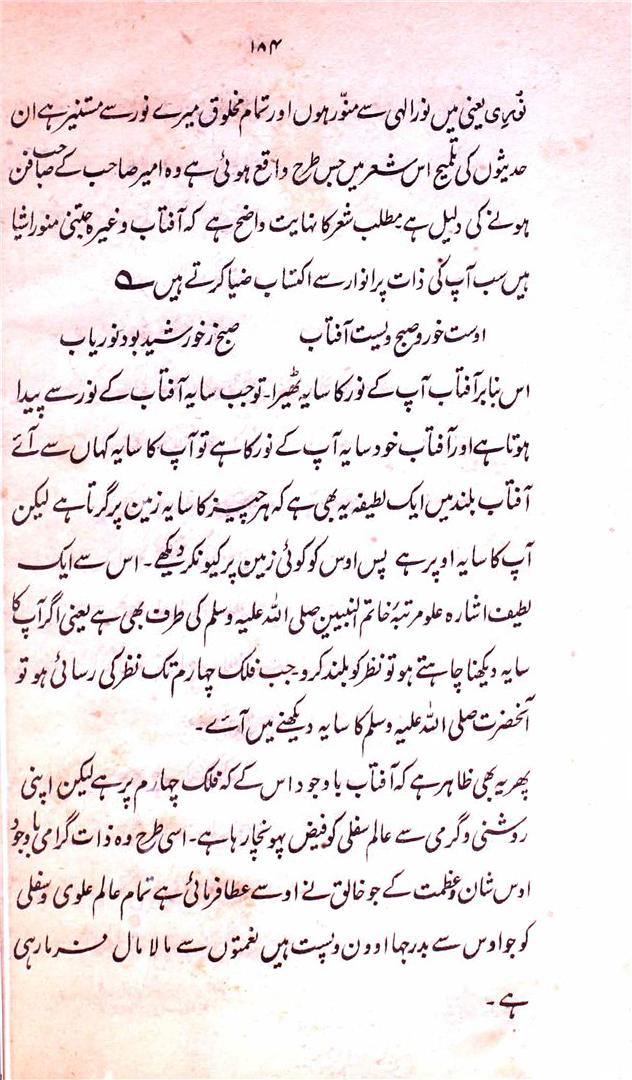 ۱۸۴
نُوْرِی یعنی میں نور الٰہی سے منوّر ہوں اور تمام مخلوق میرے نور سے مستنیر ہے ان
حدیثوں کی تلمیح اس شعر میں جس طرح واقع ہوئی ہے وہ امیر صاحب کے صاحب فن
ہونے کی دلیل ہے مطلب شعر کا نہایت واضح ہے کہ آفتاب وغیرہ جتنی منور اشیا
ہیں سب آپ کی ذات پر انوار سے اکتساب ضیا کرتے ہیں ؎
اوست خور و صبح ویست آفتاب صبح ز خورشید بود نور یاب
اس بنا پر آفتاب آپ کے نور کا سایہ ٹھیرا۔ تو جب سایہ آفتاب کے نور سے پیدا
ہوتا ہے اور آفتاب خود سایہ آپ کے نور کا ہے تو آپ کا سایہ کہاں سے آئے
آفتاب بلند میں ایک لطیفہ یہ بھی ہے کہ ہر چیز کا سایہ زمین پر گرتا ہے لیکن
آپ کا سایہ اوپر ہے پس اوس کو کوئی زمین پر کیونکر دیکھے۔ اس سے ایک
لطیف اشارہ علو مرتبۂ خاتم النبیین صلی اللہ علیہ وسلم کی طرف بھی ہے یعنی اگر آپ کا
سایہ دیکھنا چاہتے ہو تو نظر کو بلند کرو جب فلک چہارم تک نظر کی رسائی ہو تو
آنحضرت صلی اللہ علیہ وسلم کا سایہ دیکھنے میں آئے۔
پھر یہ بھی ظاہر ہے کہ آفتاب باوجود اس کے کہ فلک چہارم پر ہے لیکن اپنی
روشنی و گرمی سے عالم سفلی کو فیض پہونچا رہا ہے۔ اسی طرح وہ ذات گرامی باوجود
اوس شان و عظمت کے جو خالق نے اوسے عطا فرمائی ہے تمام عالم علوی و سفلی
کو جو اوس سے بدرجہا ادون و پست ہیں نعمتوں سے مالا مال فرما رہی
ہے۔